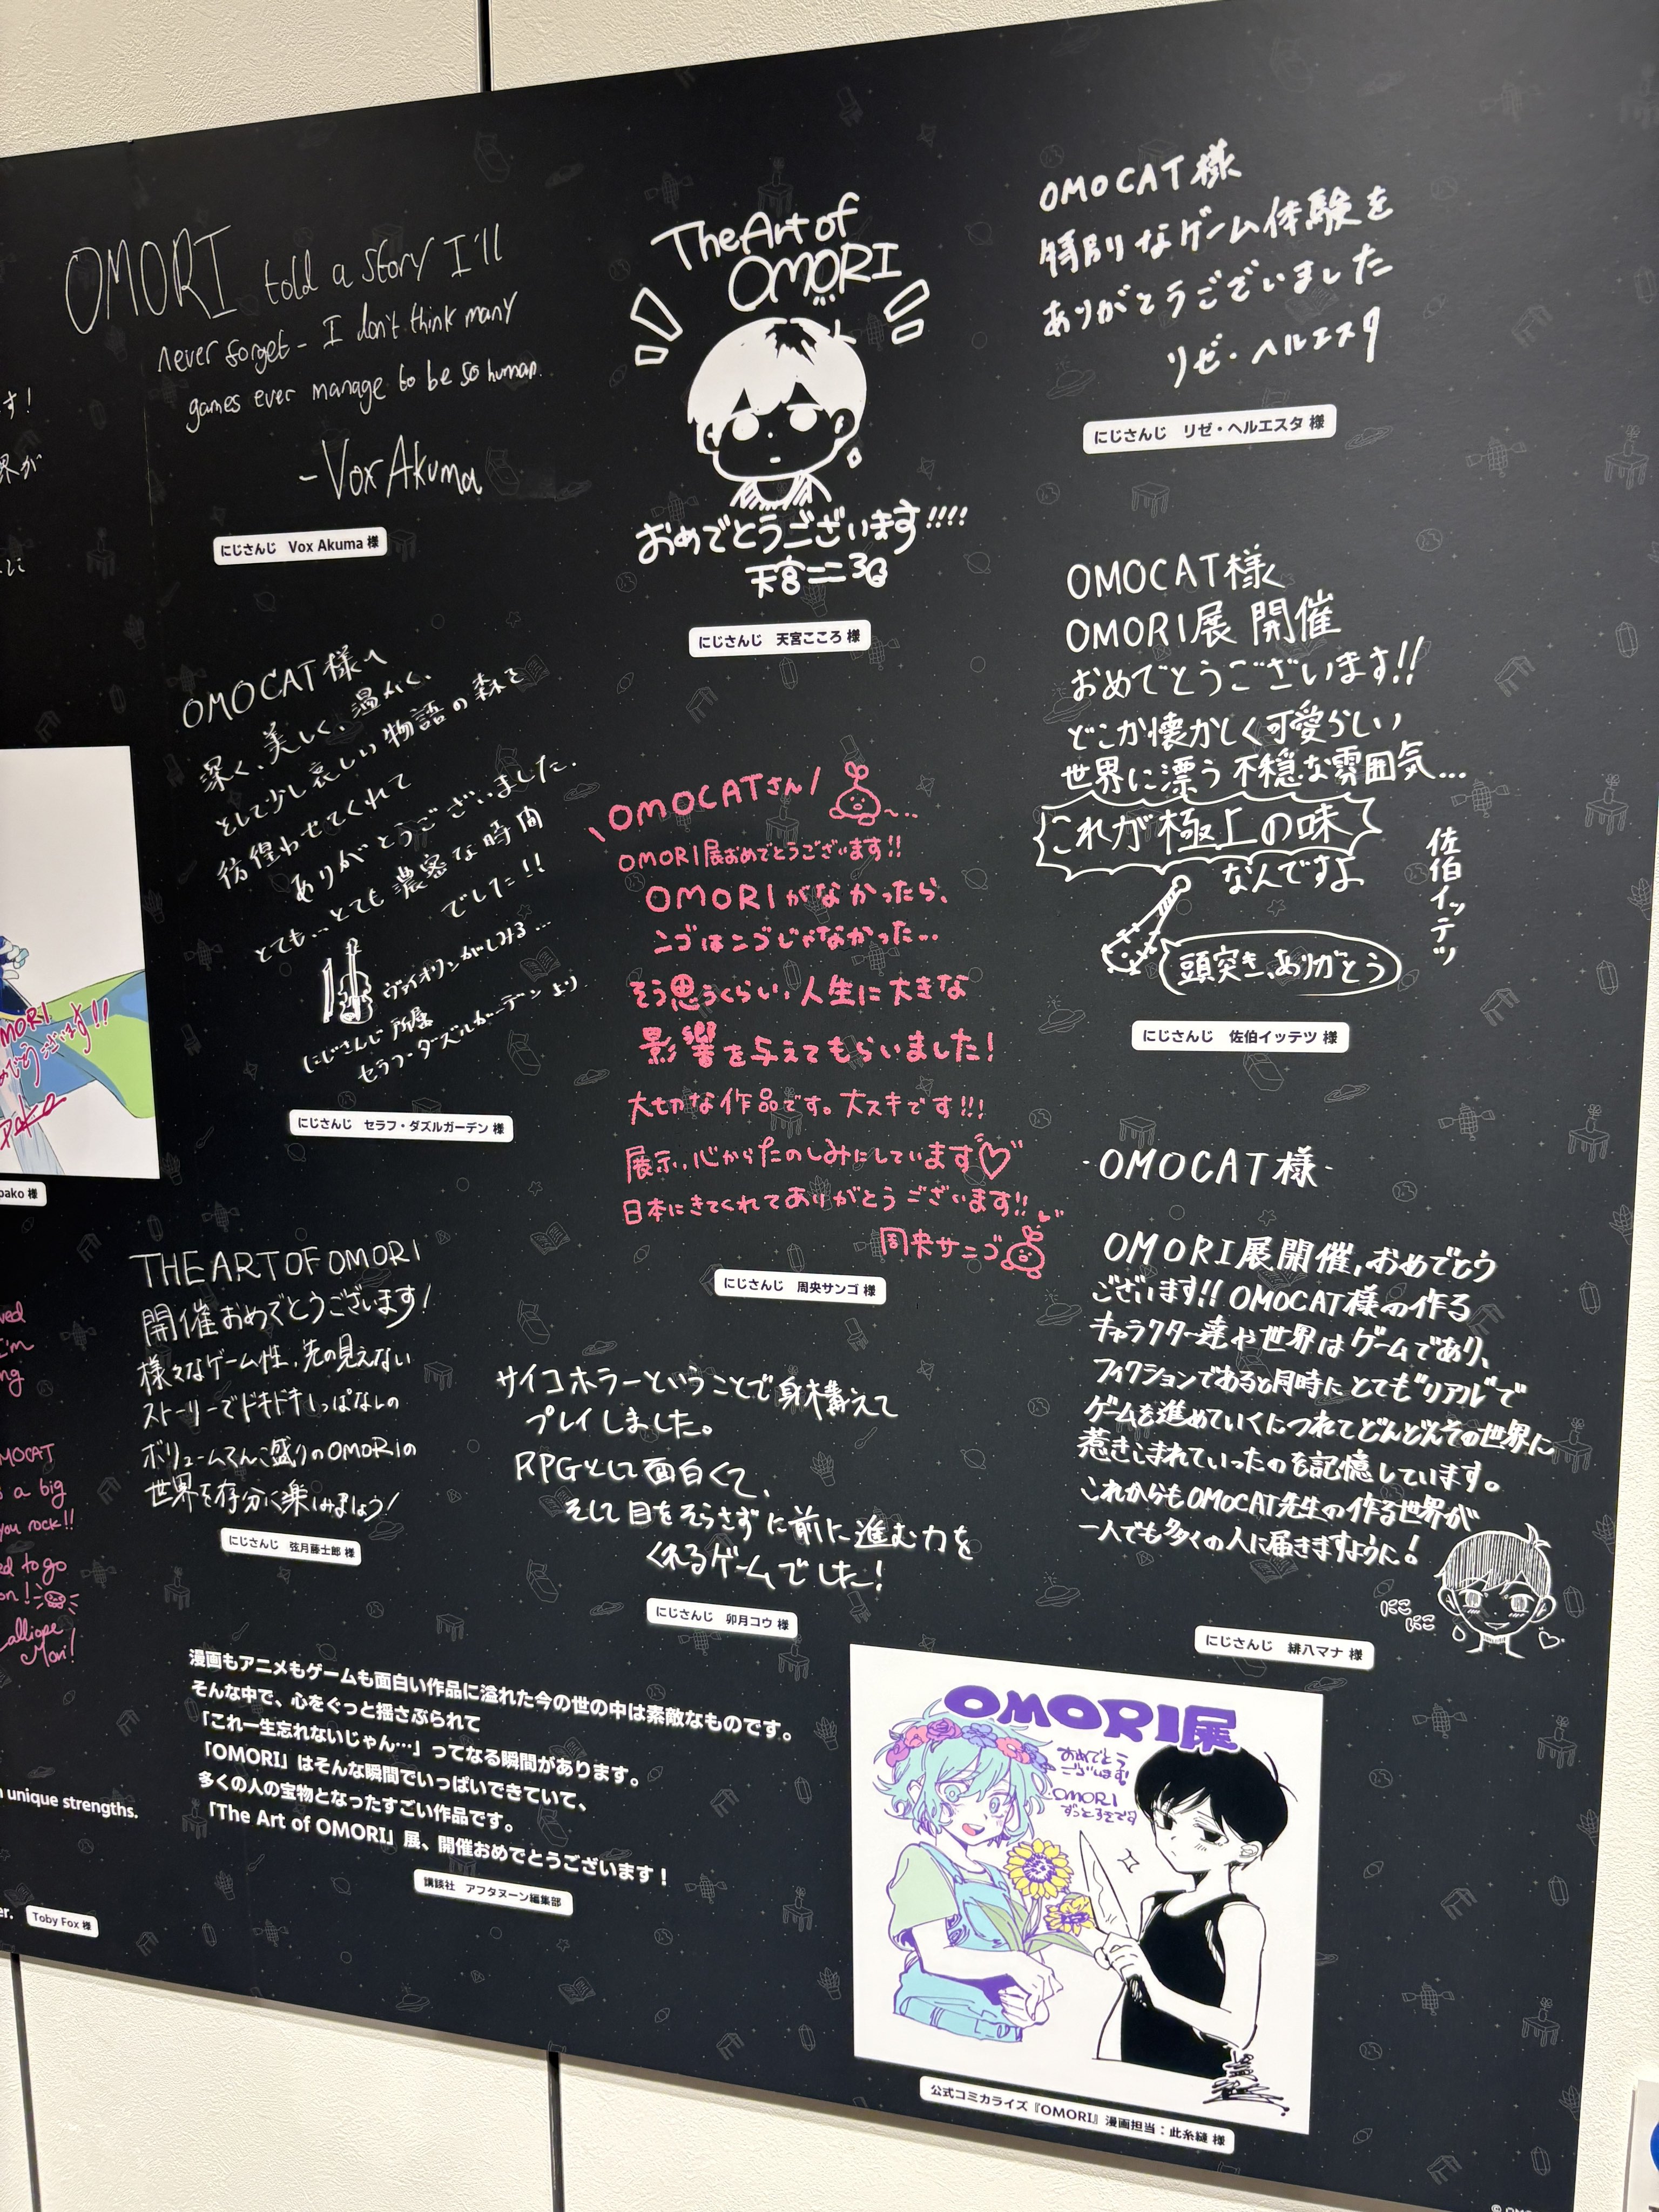 OMORI told a story I'll
never forget - I don't think many
games ever manage to be so human.
- Vox Akuma
にじさんじ Vox Akuma 様
The Art of
OMORI
おめでとうございます!!!!
天宮こころ
にじさんじ 天宮こころ 様
OMOCAT様
特別なゲーム体験を
ありがとうございました
リゼ・ヘルエスタ
にじさんじ リゼ・ヘルエスタ 様
す!
界が
OMOCAT様へ
深く、美しく、温かく、
そして少し哀しい物語の森を
彷徨わせてくれて
ありがとうございました.
とても…とても濃密な時間
でした!!
ヴァイオリンがしみる…
にじさんじ所属
セラフ・ダズルガーデンより
にじさんじ セラフ・ダズルガーデン 様
OMOCATさん!
OMORI展おめでとうございます!!
OMORIがなかったら、
ンゴはンゴじゃなかった…
そう思うくらい、人生に大きな
影響を与えてもらいました!
大切な作品です。大スキです!!!
展示、心からたのしみにしています♡
日本にきてくれてありがとうございます!!
周央サンゴ
にじさんじ 周央サンゴ 様
OMOCAT様
OMORI展 開催
おめでとうございます!!
どこか懐かしく可愛らしい
世界に漂う不穏な雰囲気…
これが極上の味
なんですよ
佐伯イッテツ
頭突き、ありがとう
にじさんじ 佐伯イッテツ 様
MORI
pako 様
THE ART OF OMORI
開催おめでとうございます!
様々なゲーム性、先の見えない
ストーリーでドキドキしっぱなしの
ボリュームてんこ盛りのOMORIの
世界を存分に楽しみましょう!
にじさんじ 弦月藤士郎 様
サイコホラーということで身構えて
プレイしました。
RPGとして面白くて、
そして目をそらさずに前に進む力を
くれるゲームでした!
にじさんじ 卯月コウ 様
-OMOCAT様-
OMORI展開催,おめでとう
ございます!! OMOCAT様の作る
キャラクター達や世界はゲームであり、
フィクションであると同時にとても"リアル"で
ゲームを進めていくにつれてどんどんその世界に
惹きこまれていったのを記憶しています。
これからもOMOCAT先生の作る世界が
一人でも多くの人に届きますように!
にこ
にこ
にじさんじ 緋八マナ 様
ved
I'm
ng
MOCAT
s a big
you rock!!
ed to go
on!
alliope
Mori!
漫画もアニメもゲームも面白い作品に溢れた今の世の中は素敵なものです。
そんな中で、心をぐっと揺さぶられて
「これ一生忘れないじゃん…」ってなる瞬間があります。
「OMORI」はそんな瞬間でいっぱいできていて、
多くの人の宝物となったすごい作品です。
「The Art of OMORI」展、開催おめでとうございます!
講談社 アフタヌーン編集部
unique strengths.
er.
Toby Fox 様
OMORI展
おめでとう
ございます!
OMORI
ずっとすきです
公式コミカライズ『OMORI』漫画担当:此糸縫 様